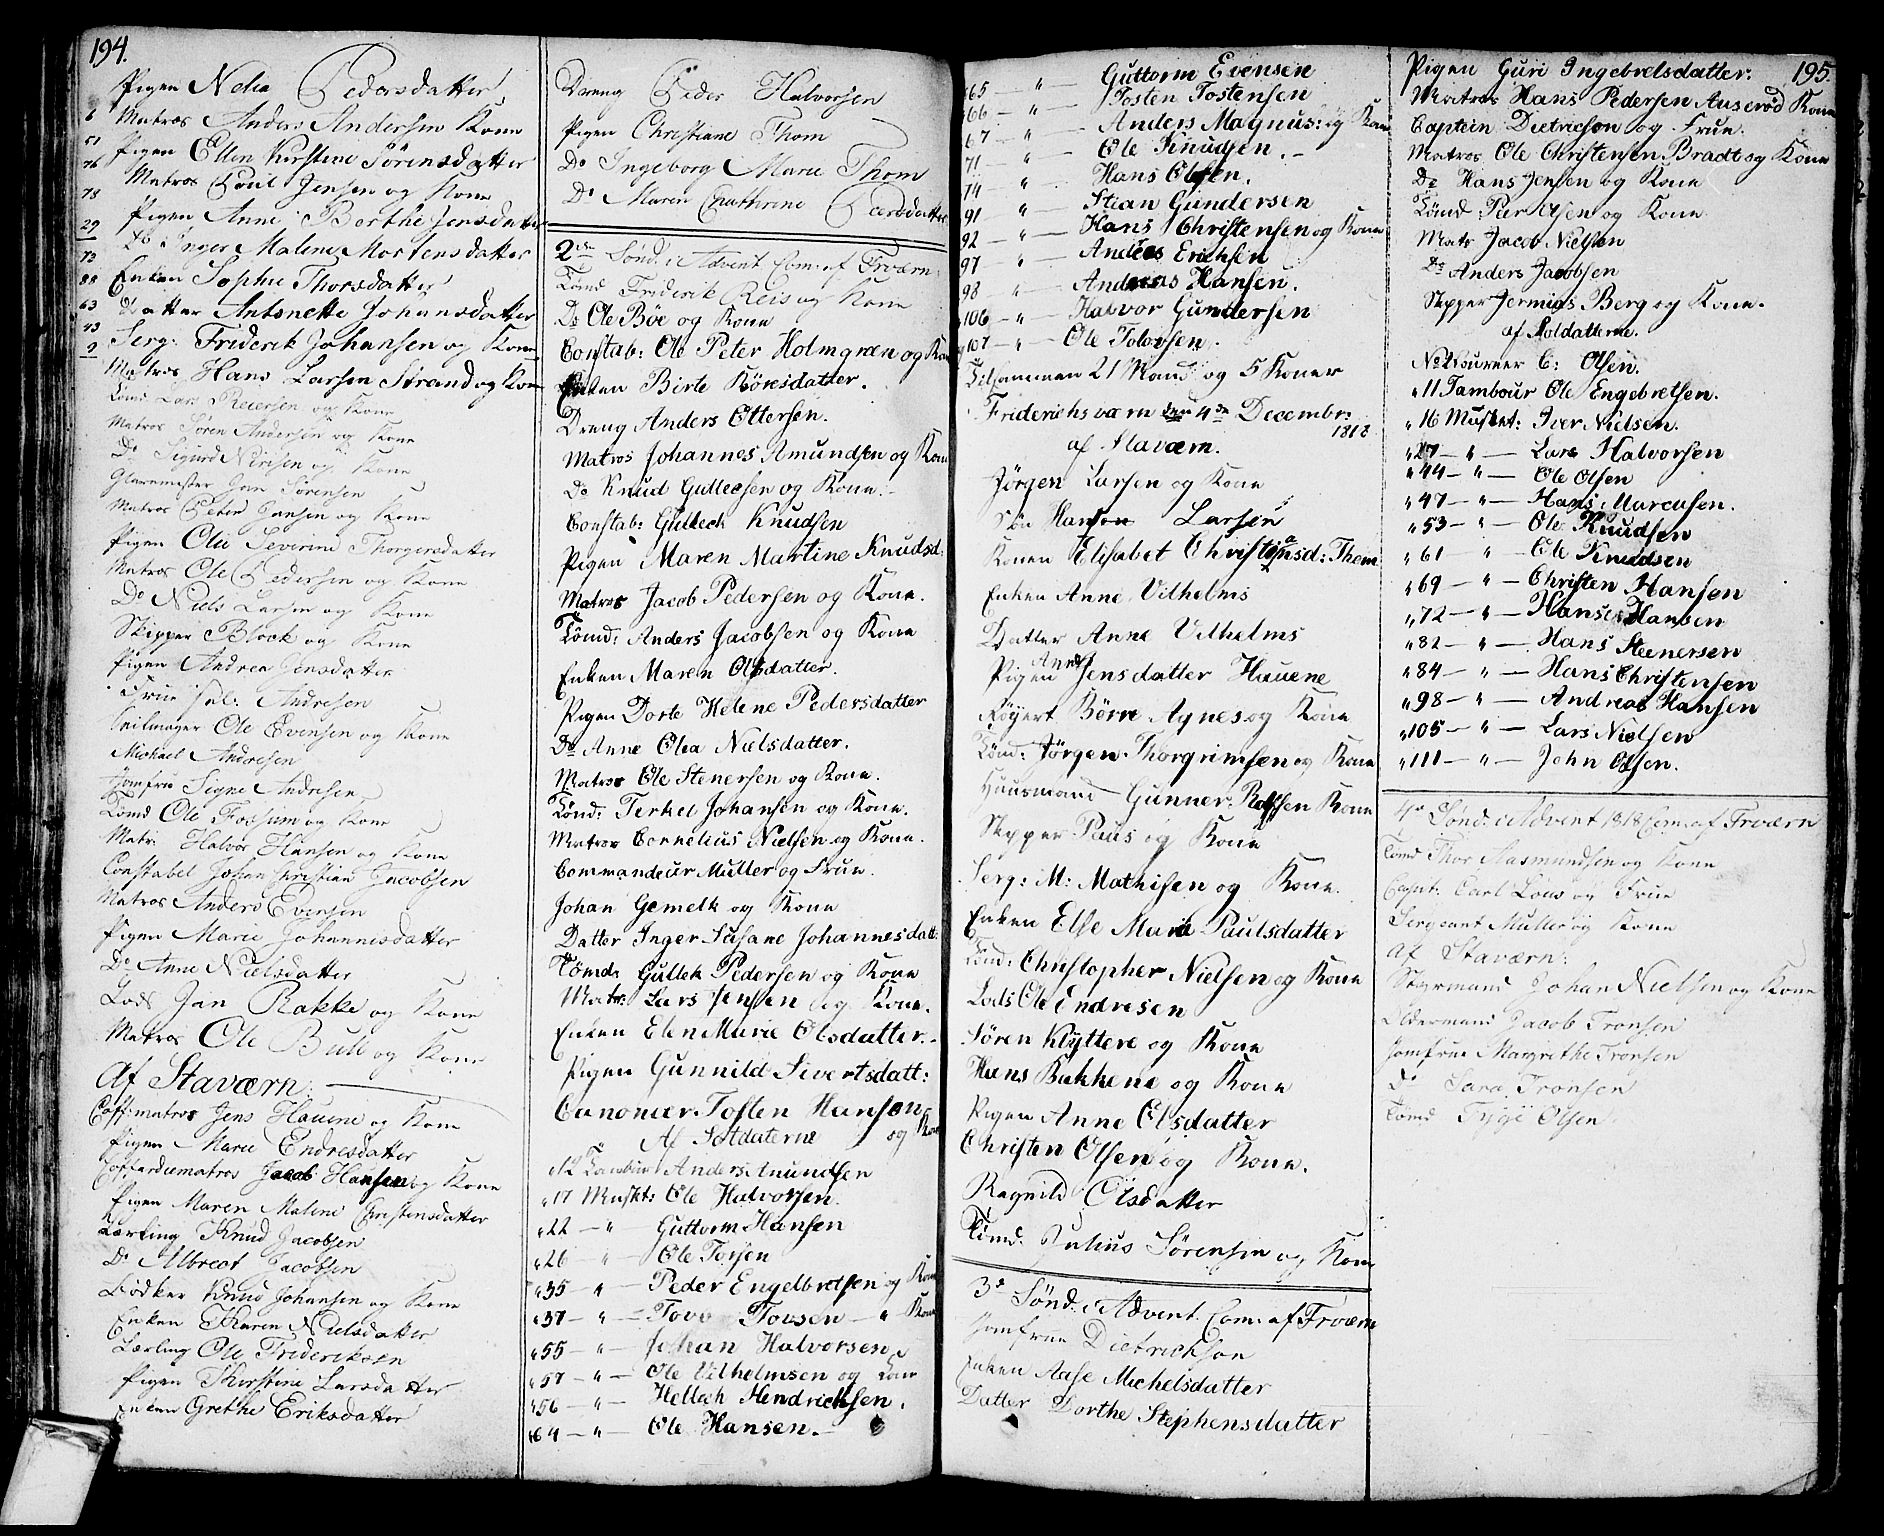 194.
Pigen Nelia Pedersdatter
6 Matros Anders Andersen Kone
51 Pigen Ellen Kirstine Sörensdatter
76 Matros Poul Jensen og Kone
78 Pigen Anne Berthe Jensdatter
29 Do Inger Malene Mortensdatter
73 Enken Sophie Thorsdatter
88 Datter Antonette Johansdatter
63 Serg: Friderik Johansen og Kone
43 Matros Hans Larsen Strand og Kone
9
Tömd Lars Reiersen og Kone
Matros Sören Andersen og Kone
Do Sigurd Nirisen og Kone
Glarmester Jan Sörensen
Matros Peder Jansen og Kone
Pigen Olie Severine Thorgersdatter
Matros Ole Pedersen og Kone
Do Niels Larsen og Kone
Skipper Block og Kone
Pigen Andrea Jensdatter
Frue sal. Andresen
Seilmager Ole Evensen og Kone
Michael Andresen
Jomfru Signe Andresen
Tömd Ole Fossum og Kone
Matr: Halvor Hansen og Kone
Constabel Johan Christian Jacobsen
Matros Anders Evensen
Pigen Marie Johannesdatter
Do Anne Nielsdatter
Lods Jan Rakke og Kone
Matros Ole Bull og Kone
Af Staværn:
Coff:matros Jens Hauene og Kone
Pigen Marie Endresdatter
Cofferdiematros Jacob Hansen og Kone
Pigen Maren Malene Christensdatter
Lærling Knud Jacobsen
Do Albrect Jacobsen
Bödker Knud Johansen og Kone
Enken Karen Nielsdatter
Lærling Ole Frideriksen
Pigen Kirstine Larsdatter
Enken Grethe Eriksdatter
Dreng Peder Halvorsen
Pigen Christiane Thom
Do Ingeborg Marie Thom
Do Maren Cathrine Peersdatter
2den Sönd: i Advent Com: af Frværn:
Tömd Friderik Reis og Kone
Do Ole Böe og Kone
Constab: Ole Peter Holmgren og Kone
Enken Birte Börresdatter.
Dreng Anders Ottersen.
Matros Johannes Amundsen og Kone
Do Knud Gullecsen og Kone.
Constab: Gulleck Knudsen
Pigen Maren Martine Knudsd:
Matros Jacob Pedersen og Kone.
Tömd: Anders Jacobsen og Kone
Enken Maren Olsdatter.
Pigen Dorte Helene Pedersdatter
Do Anne Olea Nielsdatter.
Matros Ole Stenersen og Kone.
Tömd: Terkel Johansen og Kone.
Matros Cornelius Nielsen og Kone.
Commandeur Muller og Frue.
Johan Gemelk og Kone
Datter Inger Susane Johannesdatt:
Tömd: Gullek Pedersen og Kone
Matr: Lars Jensen og Kone.
Enken Elen Marie Olsdatter.
Pigen Gunnild Sivertsdatt:
Canoneer Tosten Hansen og Kone
Af Soldaterne
12 Tambur Anders Anundsen
" 17 Muskt: Ole Halvorsen.
" 22 — " — Guttorm Hansen
" 26 " — Ole Torsen
" 35 — " — Peder Engelbretsen og Kone
" 37 — " — Tovs Tovsen — " Kone
" 55 — " — Johan Halvorsen
" 57 — " — Ole Vilhelmsen og Kone
" 56 — " — Hellich Hendrichsen.
" 64 — " — Ole Hansen.
65 — " — Guttorm Evensen
66 — " — Tosten Tostensen
67 — " — Anders Magnus: og Kone
71 — " — Ole Knudsen.
74 " — Hans Olsen.
91 " — Stian Gundersen
92 — " — Hans Christensen og Kone
97 — " — Anders Erichsen
98 " — Andreas Hansen.
106 — " — Halvor Gundersen
107 — " — Ole Tolovsen.
Tilsammen 21 Mand og 5 Koner
Friderichsværn den 4de Decembr: 1818
af Staværn.
Jörgen Larsen og Kone
Sön Hanson Larsen
Konen Elisabet Christiansd: Thom
Enken Anne Vilhelms
Datter Anne Vilhelms
Pigen Anne Jensdatter Hauene
Röyert Börre Agnes og Kone
Tömd: Jörgen Thorgrimsen og Kone
Huusmand Gunner Rolfsen Kone
Skipper Paus og Kone
Serg: M: Mathisen og Kone.
Enken Else Marie Paulsdatter
Tömd: Christopher Nielsen og Kone
Lods Ole Endresen
Sören Klyttere og Kone
Hans Bakkene og Kone
Pigen Anne Olsdatter
Christen Olsen og Kone.
Ragnild Olsdatter
Tömd. Julius Sörensen og Kone
3e Sönd: i Advent Com: af Frværn
Jomfrue Dietrichson
Enken Aase Michelsdatter
Datter Dorthe Stephensdatter
195.
Pigen Guri Ingebretsdatter.
Matros Hans Pedersen Auseröd Kone
Captein Dietrichson og Frue.
Matros Ole Christensen Bradt og Kone
Do Hans Jensen og Kone
Tömd: Peer Olsen og Kone
Matr Jacob Nielsen
Do Anders Jacobsen
Skipper Jermias Berg og Kone.
af Soldatterne.
No 2 C: Olsen.
" 11 Tambour Ole Engebretsen.
" 16 Musket: Iver Nielsen.
" 27 — " — Lars Halvorsen
" 44 — " — Ole Olsen
" 47 — " — Hans Marcusen.
" 53 — " — Ole Knudsen
" 61 " — Ole Knudsen
" 69 — " — Christen Hansen
" 72 — " — Hans Hansen
" 82 — " — Hans Steenersen
" 84 — " — Hans Christensen
" 98 — " — Andreas Hansen
" 105 — " — Lars Nielsen
" 111 — " — John Olsen.
4e Sönd: i Advent 1818 Com: af Frværn
Tömd Thor Aasmundsen og Kone
Capt: Carl Lous og Frue
Sergeant Muller og Kone
af Staværn:
Styrmand Johan Nielsen og Kone
Oldermand Jacob Tronsen
Jomfrue Margrethe Tronsen
Do Sara Tronsen
Tömd Tygi Olsen